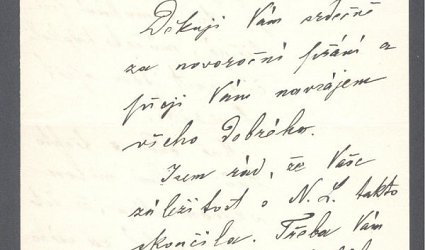 Děkuji Vám srdečně
za novoroční přání a
přeji Vám navzájem
všeho dobrého.
Jsem rád, že Vaše
záležitost o N. L. takto
skončila. Třeba Vám